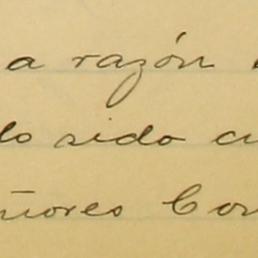 a razón
do sido cu
ñores Con